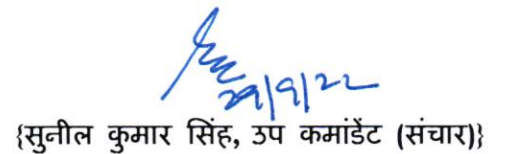 29/9/22
{सुनील कुमार सिंह, उप कमांडेंट (संचार)}